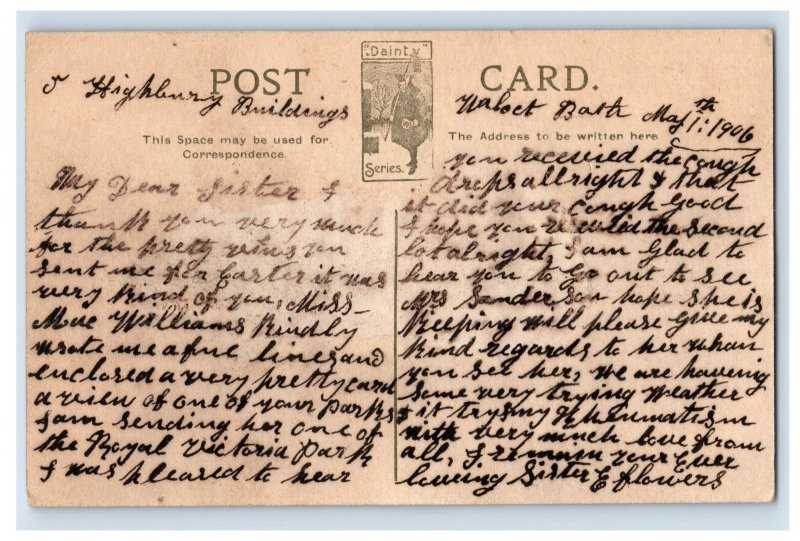 "Dainty"
POST CARD.
Series.
5 Highbury
Buildings
Walcot Bath May 1th : 1906
This Space may be used for
Correspondence.
The Address to be written here
My Dear Sister I
thank you very much
for the pretty views you
sent me for Easter it was
very kind of you, Miss
Mac Williams kindly
wrote me a few lines and
enclosed a very pretty card
a view of one of your Parks
I am sending her one of
the Royal Victoria Park
I was pleased to hear
you received the cough
drops allright & that
it did your Cough good
I hope you received the second
lot alright, I am Glad to
hear you to Go out to see
Mrs Sanderson hope she is
Keeping will please give my
kind regards to her whan
you see her, we are haveing
some very trying Weather
& it trys my Rheumatism
with very much love from
all, I remain your Ever
loveing Sister E flowers